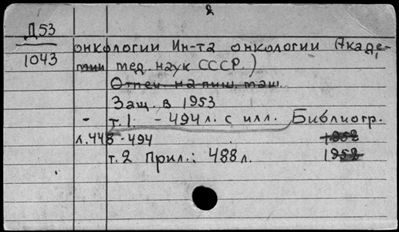 2
Д53
1043
онкологии Ин-та онкологии Акаде-
мии мед. наук СССР.)
Отпеч. на пиш. маш.
Защ. в 1953
- т. 1. - 494 л. с илл. Библиогр.
л. 445-494 1952
т. 2 Прил.: 488 л. 1952